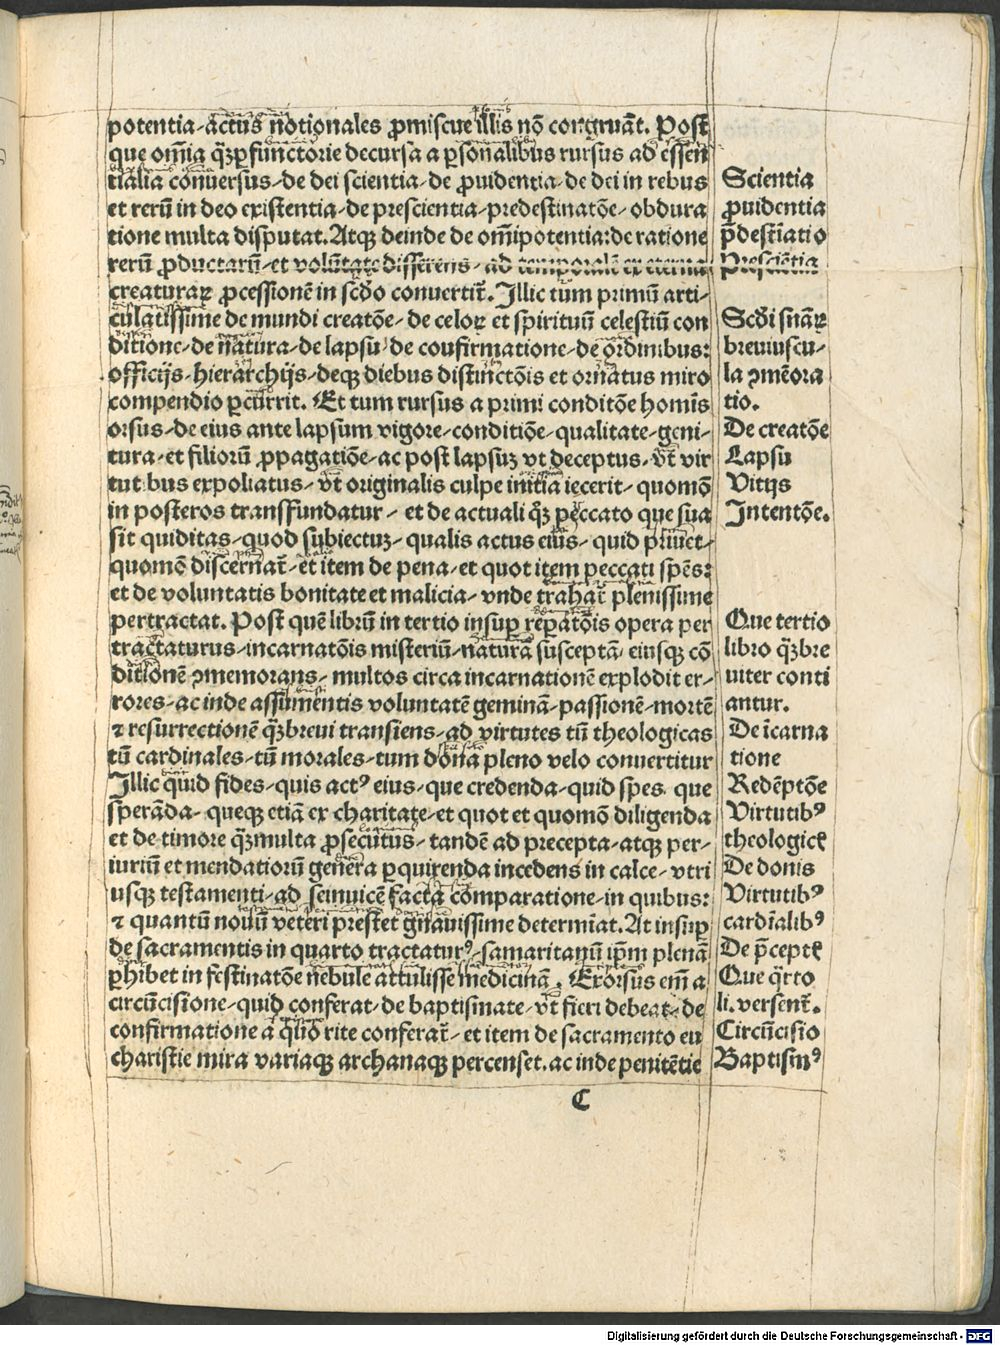 potentia-actus notionales ꝓmiscue illis nō congruāt. Post
que om̄ia q̄ꝫꝑfunctorie decursa a ꝑsonalibus rursus ad essen
tialia conuersus-de dei scientia-de ꝓuidentia-de dei in rebus
et rerū in deo existentia-de prescientia-predestinatōe-obdura
tione multa disputat. Atqꝫ deinde de om̄ipotentia:de ratione
rerū ꝓductarū-et volūtate differens-ad temporalē ex eterna
creaturaꝝ ꝓcessionē in scd̄o conuertit̄. Illic tum primū arti-
culatissime de mundi creatōe-de celoꝝ et spirituū celestiū con
ditione-de natura-de lapsu de confirmatione-de ordinibus:
officijs-hierarchijs-deqꝫ diebus distinctōis et ornatus miro
compendio ꝑcurrit. Et tum rursus a primi conditōe homīs
orsus-de eius ante lapsum vigore-conditiōe-qualitate-geni-
tura-et filiorū ꝓpagatiōe-ac post lapsuꝫ vt deceptus-vt̄ vir
tut bus expoliatus-vt̄ originalis culpe initia iecerit-quomō
in posteros transfundatur-et de actuali q̄ꝫ peccato que sua
sit quiditas-quod subiectuꝫ-qualis actus eius-quid priuet-
quomō discernat̄-et item de pena-et quot item peccati spēs:
et de voluntatis bonitate et malicia-vnde trahat̄ plenissime
pertractat. Post quē librū in tertio insuꝑ reꝑatōis opera per
tractaturus-incarnatōis misteriū-naturā susceptā-eiusqꝫ cō
ditionē ꝯmemorans-multos circa incarnationē explodit er-
rores-ac inde assumentis voluntatē geminā-passionē-mortē
⁊ resurrectionē q̄ꝫbreui transiens-ad virtutes tū theologicas
tū cardinales-tū morales-tum dona pleno velo conuertitur
Illic quid fides-quis actꝰ eius-que credenda-quid spes que
sperāda-queqꝫ etiā ex charitate-et quot et quomō diligenda
et de timore q̄ꝫmulta ꝓsecutus-tandē ad precepta-atqꝫ per-
iuriū et mendatiorū genera ꝑquirenda incedens in calce-vtri
usqꝫ testamenti-ad seinuicē facta comparatione-in quibus:
⁊ quantū nouū veteri prestet gnauissime determīat. At insuꝑ
de sacramentis in quarto tractaturꝰ-samaritanū ip̄m plenā
ꝑhibet in festinatōe nebule attulisse medicinā. Exorsus em̄ a
circūcisione-quid conferat-de baptismate-vt̄ fieri debeat-de
confirmatione a quo rite conferat̄-et item de sacramento eu
charistie mira variaqꝫ archanaqꝫ percenset. ac inde penitētie
C
Scientia
ꝓuidentia
p̄destīatio
Presciētia
Scd̄i sn̄aꝝ
breuiuscu-
la ꝯmēora
tio.
De creatōe
Lapsu
Vitijs
Intentōe.
Que tertio
libro q̄ꝫbre
uiter conti
antur.
De īcarna
tione
Redēptōe
Virtutibꝰ
theologicꝭ
De donis
Virtutibꝰ
cardīalibꝰ
De p̄ceptꝭ
Que q̄rto
li. versent̄.
Circūcisio
Baptismꝰ
Digitalisierung gefördert durch die Deutsche Forschungsgemeinschaft - DFG